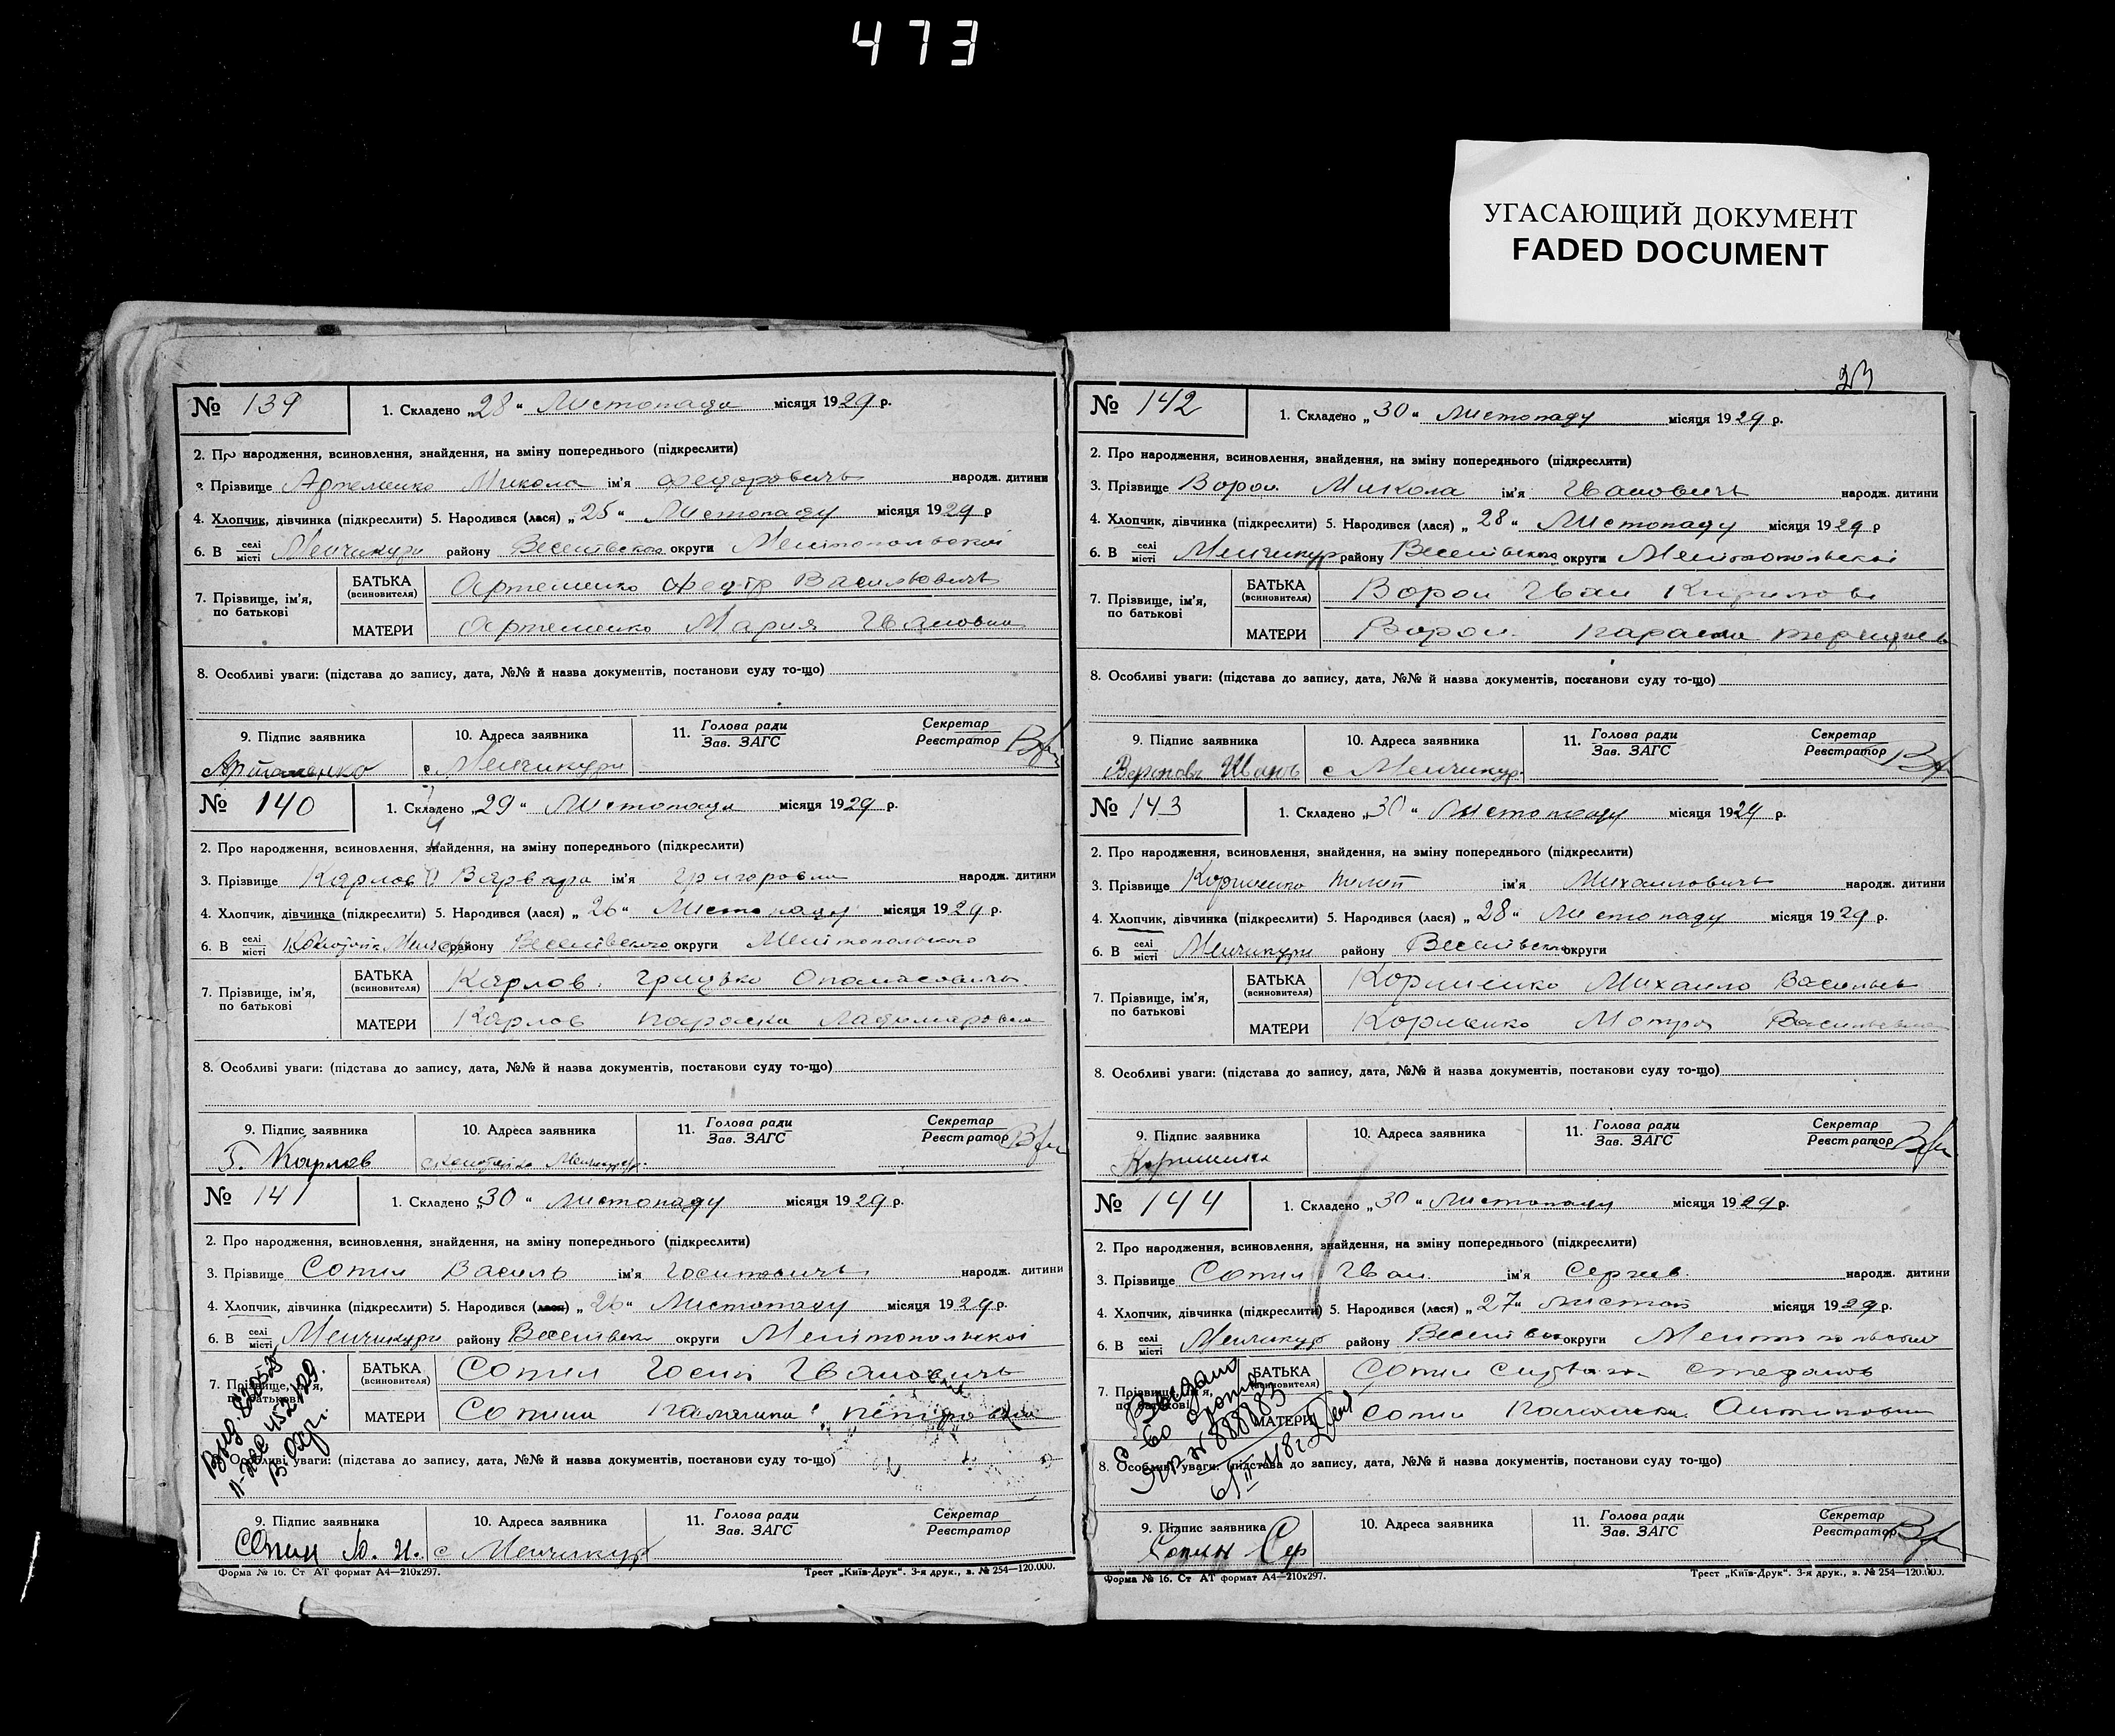 473
УГАСАЮЩИЙ ДОКУМЕНТ
FADED DOCUMENT
№ 139
1. Складено „28“ Листопада місяця 1929 р.
2. Про народження, всиновлення, знайдення, на зміну попереднього (підкреслити)
3. Прізвище Артеменко Микола ім'я Федоровичь народж. дитини
4. Хлопчик, дівчинка (підкреслити) 5. Народився (лася) „25“ Листопаду місяця 1929 р
6. В селі місті Менчикури району Веселівского округи Мелітопольскоі
7. Прізвище, ім'я, по батькові
БАТЬКА (всиновителя) Артеменко Федір Васильовичь
МАТЕРИ Артеменко Мария Івановна
8. Особливі уваги: (підстава до запису, дата, №№ й назва документів, постанови суду то-що)
9. Підпис заявника 10. Адреса заявника 11. Голова ради Зав. ЗАГС Секретар Реєстратор
Артеменко с Менчикури
№ 140
1. Складено „29“ Листопада місяця 1929 р.
2. Про народження, всиновлення, знайдення, на зміну попереднього (підкреслити)
3. Прізвище Карлов Варвара ім'я Григоровна народж. дитини
4. Хлопчик, дівчинка (підкреслити) 5. Народився (лася) „26“ Листопаду місяця 1929 р.
6. В селі місті району Веселівского округи Мелітопольского
7. Прізвище, ім'я, по батькові
БАТЬКА (всиновителя) Карлов Грицько Опанасовичь
МАТЕРИ Карлов Параска
8. Особливі уваги: (підстава до запису, дата, №№ й назва документів, постакови суду то-що)
9. Підпис заявника 10. Адреса заявника 11. Голова ради Зав. ЗАГС Секретар Реєстратор
Г. Карлов
№ 141
1. Складено „30“ Листопаду місяця 1929 р.
2. Про народження, всиновлення, знайдення, на зміну попереднього (підкреслити)
3. Прізвище Сопин Василь ім'я Іосиповичь народж. дитини
4. Хлопчик, дівчинка (підкреслити) 5. Народився (лася) „26“ Листопаду місяця 1929 р.
6. В селі місті Менчикури району Веселівск округи Мелітопольскоі
7. Прізвище, ім'я, по батькові
БАТЬКА (всиновителя) Сопин Іосип Івановичь
МАТЕРИ Сопина Петровна
8. Особливі уваги: (підстава до запису, дата, №№ й назва документів, постанови суду то-що)
9. Підпис заявника 10. Адреса заявника 11. Голова ради Зав. ЗАГС Секретар Реєстратор
Сопин с Менчикур
Форма № 16. Ст АТ формат А4—210x297. Трест „Київ-Друк“. 3-я друк., з. № 254—120.000.
23
№ 142
1. Складено „30“ Листопаду місяця 1929 р.
2. Про народження, всиновлення, знайдення, на зміну попереднього (підкреслити)
3. Прізвище Ворон Микола ім'я Івановичь народж. дитини
4. Хлопчик, дівчинка (підкреслити) 5. Народився (лася) „28“ Листопаду місяця 1929 р
6. В селі місті Менчикур району Веселівского округи Мелітопольскоі
7. Прізвище, ім'я, по батькові
БАТЬКА (всиновителя) Ворон Іван Кирилов
МАТЕРИ Ворон Параска
8. Особливі уваги: (підстава до запису, дата, №№ й назва документів, постанови суду то-що)
9. Підпис заявника 10. Адреса заявника 11. Голова ради Зав. ЗАГС Секретар Реєстратор
Иванъ с Менчикур
№ 143
1. Складено „30“ Листопаду місяця 1929 р.
2. Про народження, всиновлення, знайдення, на зміну попереднього (підкреслити)
3. Прізвище Корниенко Пилип ім'я Михаиловичь народж. дитини
4. Хлопчик, дівчинка (підкреслити) 5. Народився (лася) „28“ Листопаду місяця 1929 р.
6. В селі місті Менчикури району Веселівского округи
7. Прізвище, ім'я, по батькові
БАТЬКА (всиновителя) Корниенко Михаило Васильев
МАТЕРИ Корниенко Мотря Васильевна
8. Особливі уваги: (підстава до запису, дата, №№ й назва документів, постанови суду то-що)
9. Підпис заявника 10. Адреса заявника 11. Голова ради Зав. ЗАГС Секретар Реєстратор
№ 144
1. Складено „30“ Листопаду місяця 1929 р.
2. Про народження, всиновлення, знайдення, на зміну попереднього (підкреслити)
3. Прізвище Сопин Іван ім'я Сергиев народж. дитини
4. Хлопчик, дівчинка (підкреслити) 5. Народився (лася) „27“ Листоп місяця 1929 р.
6. В селі місті Менчикур району Веселівск округи
7. Прізвище, ім'я, по батькові
БАТЬКА (всиновителя) Сопин Степанов
МАТЕРИ Сопин
8. Особливі уваги: (підстава до запису, дата, №№ й назва документів, постанови суду то-що)
9. Підпис заявника 10. Адреса заявника 11. Голова ради Зав. ЗАГС Секретар Реєстратор
Сопин Сер
Форма № 16. Ст АТ формат А4—210x297. Трест „Київ-Друк“. 3-я друк., з. № 254—120.000.